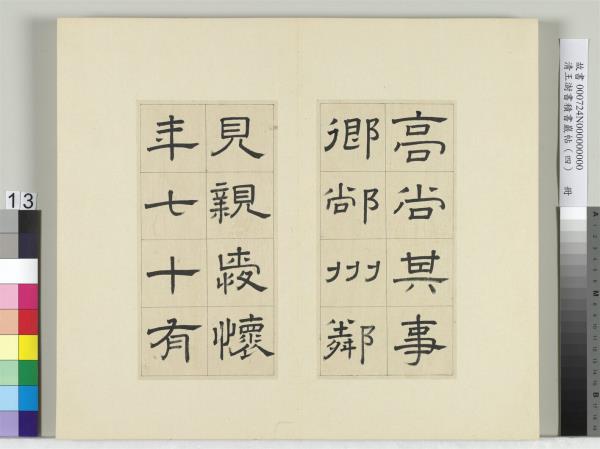 高尚其事
鄉䣊州鄰
見親愛懷
年七十有
故書 000724N000000000
清王澍書積書巖帖（四） 冊
13